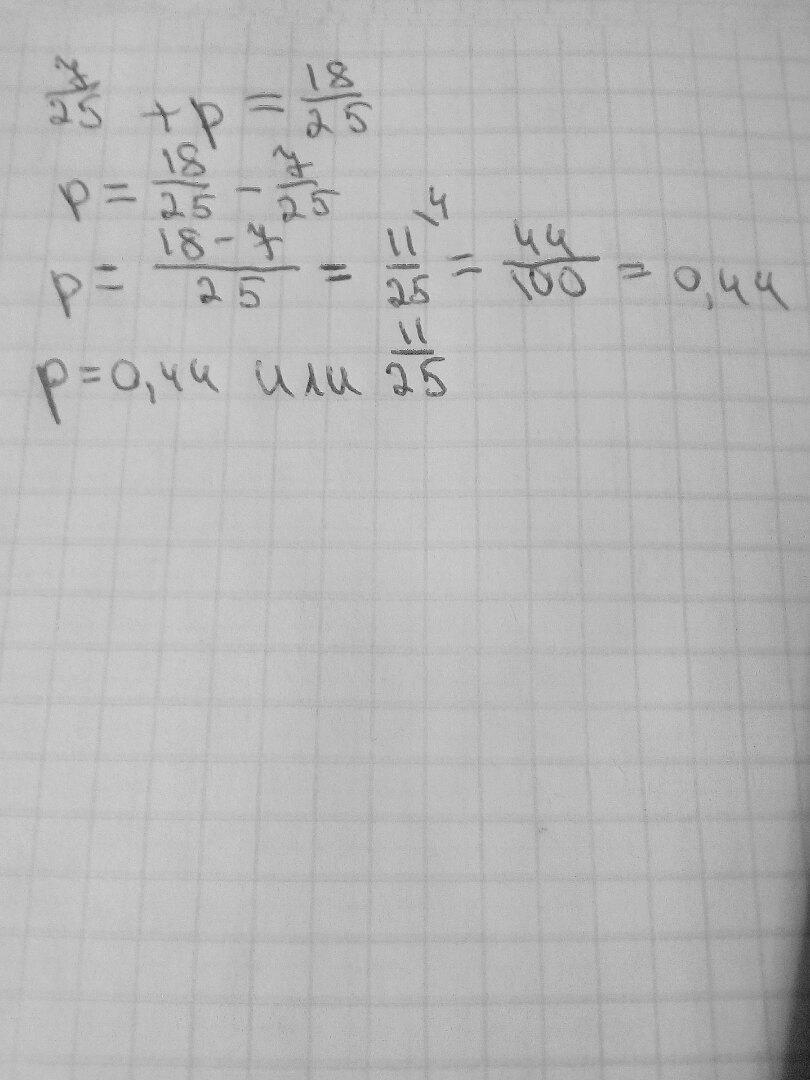 7/25 + p = 18/25
p = 18/25 - 7/25
p = 18-7/25 = 11\4/25 = 44/100 = 0,44
p = 0,44 или 11/25